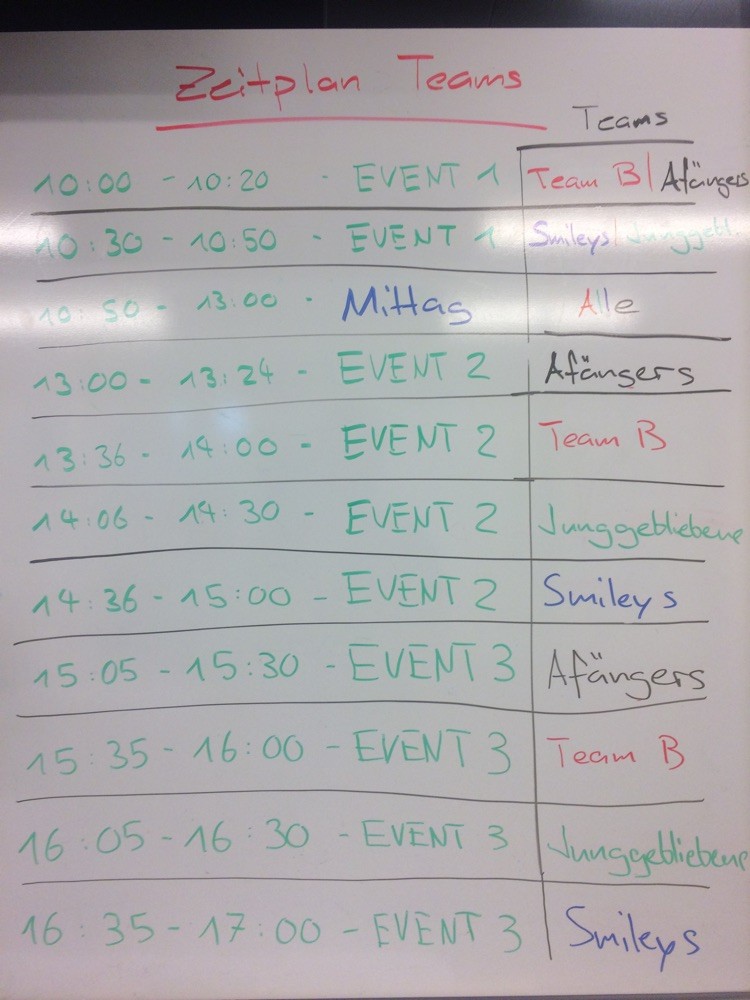 Zeitplan Teams
Teams
10:00 - 10:20 - EVENT 1 Team B | Afängers
10:30 - 10:50 - EVENT 1 Smileys | Junggebl.
10:50 - 13:00 - Mittag Alle
13:00 - 13:24 - EVENT 2 Afängers
13:36 - 14:00 - EVENT 2 Team B
14:06 - 14:30 - EVENT 2 Junggebliebene
14:36 - 15:00 - EVENT 2 Smileys
15:05 - 15:30 - EVENT 3 Afängers
15:35 - 16:00 - EVENT 3 Team B
16:05 - 16:30 - EVENT 3 Junggebliebene
16:35 - 17:00 - EVENT 3 Smileys